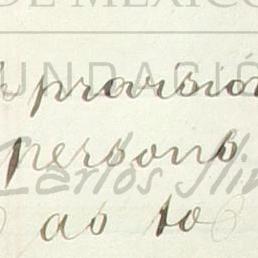 DE MÉXICO
FUNDACIÓ
provision
persons
Carlos Slim
as to